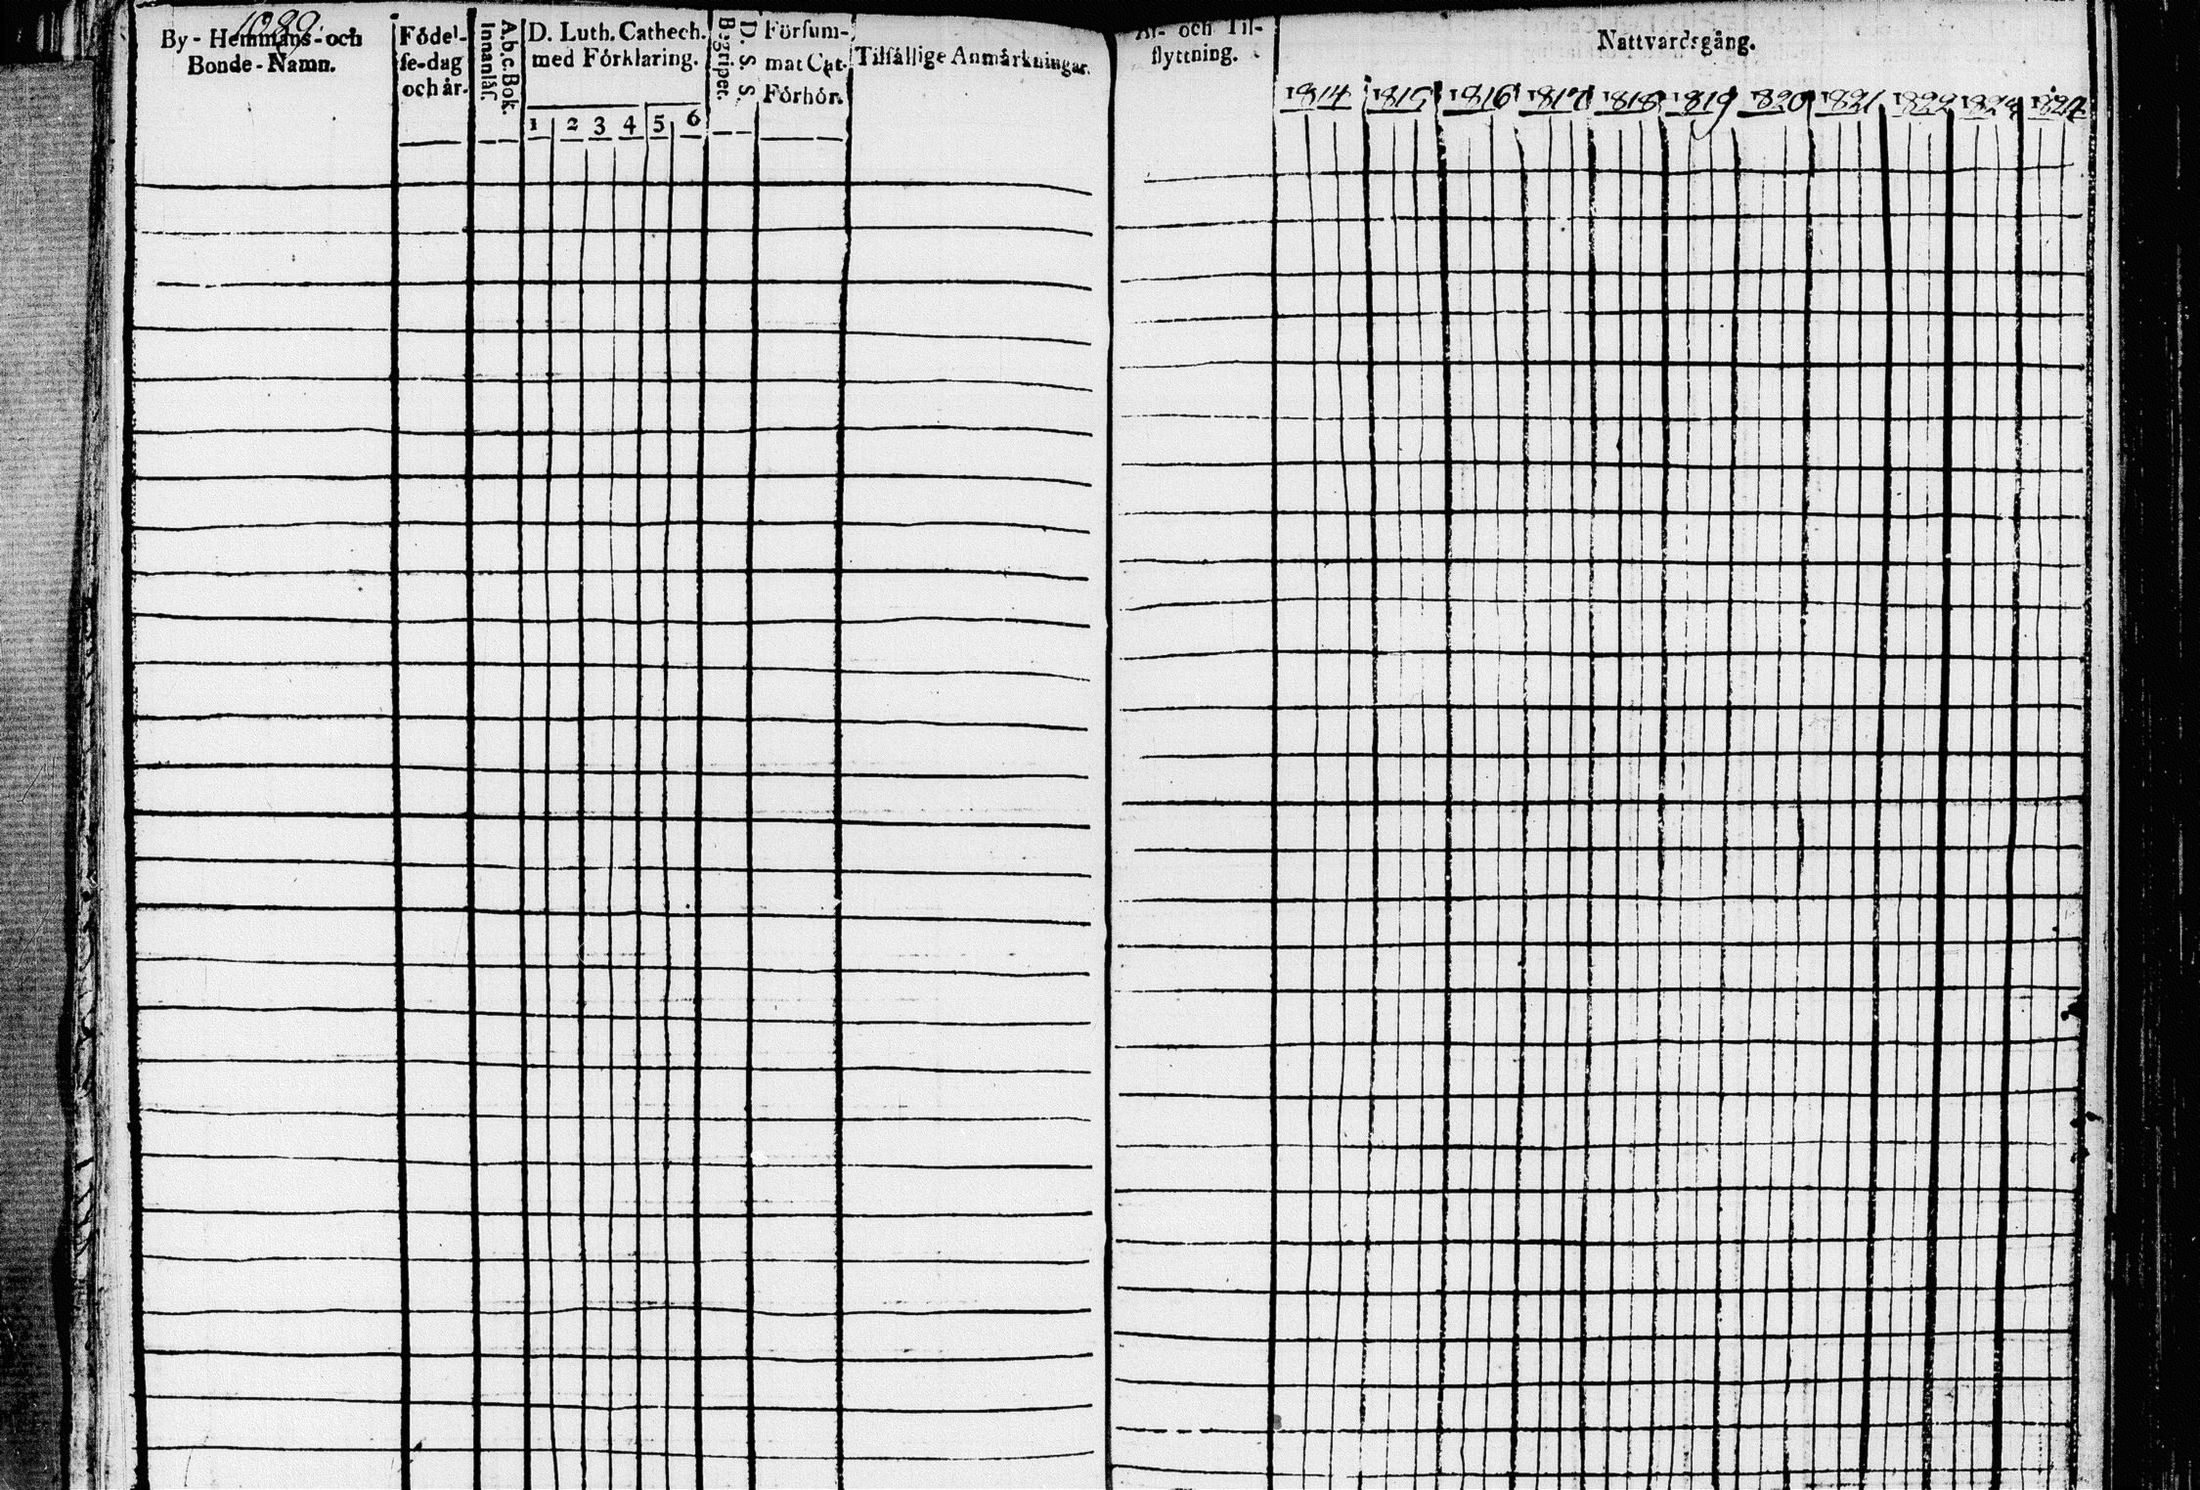 1089.
By - Hemmans - och
Bonde - Namn.
Födel-
se-dag
och år.
A.b.c. Bok.
Innanläs.
D. Luth. Cathech.
med Förklaring.
1 2 3 4 5 6
D. S. S.
Begripet.
Försum-
mat Cat.
Förhör.
Tilfällige Anmärkningar.
Af- och Til-
flyttning.
Nattvardsgång.
1814 1815 1816 1817 1818 1819 1820 1821 1822 1823 1824